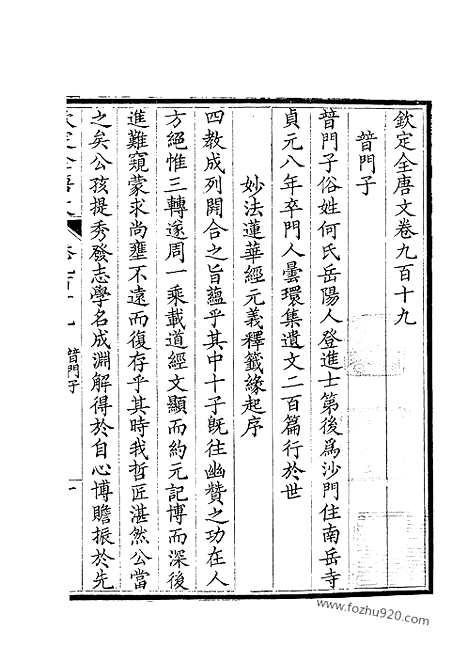 欽定全唐文卷九百十九
普門子
普門子俗姓何氏岳陽人登進士第後爲沙門住南岳寺
貞元八年卒門人曇環集遺文二百篇行於世
妙法蓮華經元義釋籤緣起序
四教成列開合之旨蘊乎其中十子旣往幽贊之功在人
方絕惟三轉遂周一乘載道經文顯而約元記博而深後
進難窺蒙求尚壅不遠而復存乎其時我哲匠湛然公當
之矣公孩提秀發志學名成淵解得於自心博贍振於先
普門子
www.fozhu920.com